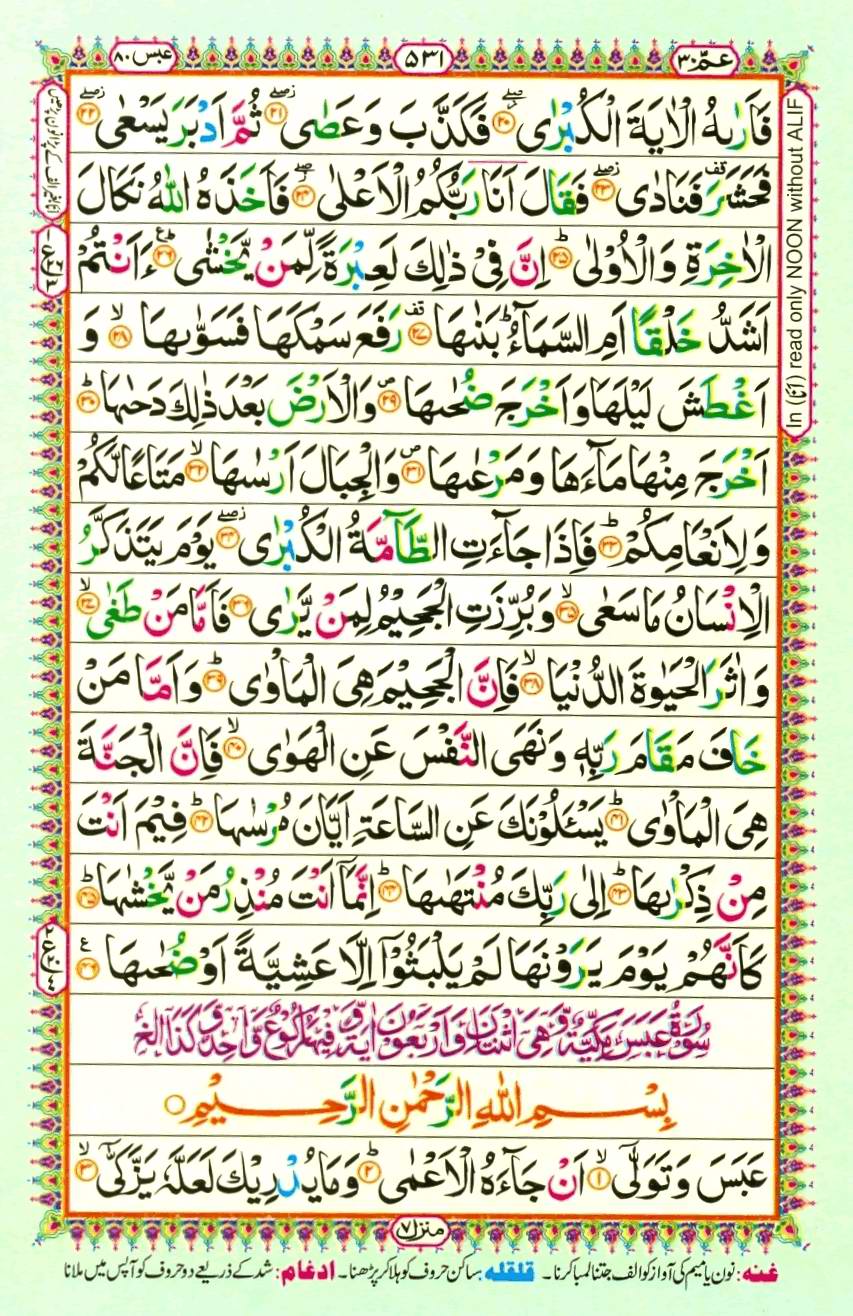 عمّ ٣٠
٥٣١
عبس ٨٠
فَاَرٰىهُ الْاٰيَةَ الْكُبْرٰى ۖ۝۲۰ فَكَذَّبَ وَعَصٰى ۖ۝۲۱ ثُمَّ اَدْبَرَ يَسْعٰى ۖ۝۲۲
فَحَشَرَ فَنَادٰى ۖ۝۲۳ فَقَالَ اَنَا رَبُّكُمُ الْاَعْلٰى ۖ۝۲۴ فَاَخَذَهُ اللّٰهُ نَكَالَ
الْاٰخِرَةِ وَالْاُوْلٰى ؕ۝۲۵ اِنَّ فِيْ ذٰلِكَ لَعِبْرَةً لِّمَنْ يَّخْشٰى ؕ۝۲۶ ءَاَنْتُمْ
اَشَدُّ خَلْقًا اَمِ السَّمَآءُ ؕ بَنٰىهَا ۥ۝۲۷ رَفَعَ سَمْكَهَا فَسَوّٰىهَا ۙ۝۲۸ وَ
اَغْطَشَ لَيْلَهَا وَاَخْرَجَ ضُحٰىهَا ۪۝۲۹ وَالْاَرْضَ بَعْدَ ذٰلِكَ دَحٰىهَا ؕ۝۳۰
اَخْرَجَ مِنْهَا مَآءَهَا وَمَرْعٰىهَا ۪۝۳۱ وَالْجِبَالَ اَرْسٰىهَا ۙ۝۳۲ مَتَاعًا لَّكُمْ
وَلِاَنْعَامِكُمْ ؕ۝۳۳ فَاِذَا جَآءَتِ الطَّآمَّةُ الْكُبْرٰى ۖ۝۳۴ يَوْمَ يَتَذَكَّرُ
الْاِنْسَانُ مَا سَعٰى ۙ۝۳۵ وَبُرِّزَتِ الْجَحِيْمُ لِمَنْ يَّرٰى ۝۳۶ فَاَمَّا مَنْ طَغٰى ۙ۝۳۷
وَاٰثَرَ الْحَيٰوةَ الدُّنْيَا ۙ۝۳۸ فَاِنَّ الْجَحِيْمَ هِيَ الْمَاْوٰى ؕ۝۳۹ وَاَمَّا مَنْ
خَافَ مَقَامَ رَبِّهٖ وَنَهَى النَّفْسَ عَنِ الْهَوٰى ۙ۝۴۰ فَاِنَّ الْجَنَّةَ
هِيَ الْمَاْوٰى ؕ۝۴۱ يَسْـَٔلُوْنَكَ عَنِ السَّاعَةِ اَيَّانَ مُرْسٰىهَا ؕ۝۴۲ فِيْمَ اَنْتَ
مِنْ ذِكْرٰىهَا ؕ۝۴۳ اِلٰى رَبِّكَ مُنْتَهٰىهَا ؕ۝۴۴ اِنَّمَآ اَنْتَ مُنْذِرُ مَنْ يَّخْشٰىهَا ؕ۝۴۵
كَاَنَّهُمْ يَوْمَ يَرَوْنَهَا لَمْ يَلْبَثُوْٓا اِلَّا عَشِيَّةً اَوْ ضُحٰىهَا ۝۴۶
سُوْرَةُ عَبَسَ مَكِّيَّةٌ وَّهِيَ اثْنَتَانِ وَاَرْبَعُوْنَ اٰيَةً وَّفِيْهَا رُكُوْعٌ وَّاحِدٌ
بِسْمِ اللّٰهِ الرَّحْمٰنِ الرَّحِيْمِ
عَبَسَ وَتَوَلّٰىٓ ۙ۝۱ اَنْ جَآءَهُ الْاَعْمٰى ؕ۝۲ وَمَا يُدْرِيْكَ لَعَلَّهٗ يَزَّكّٰىٓ ۙ۝۳
منزل ٧
In (اَنَا) read only NOON without ALIF
غنه: نون یا میم کی آواز کو الف جتنا لمبا کرنا۔ قلقله: ساکن حروف کو ہلا کر پڑھنا۔ ادغام: شد کے ذریعے دو حروف کو آپس میں ملانا